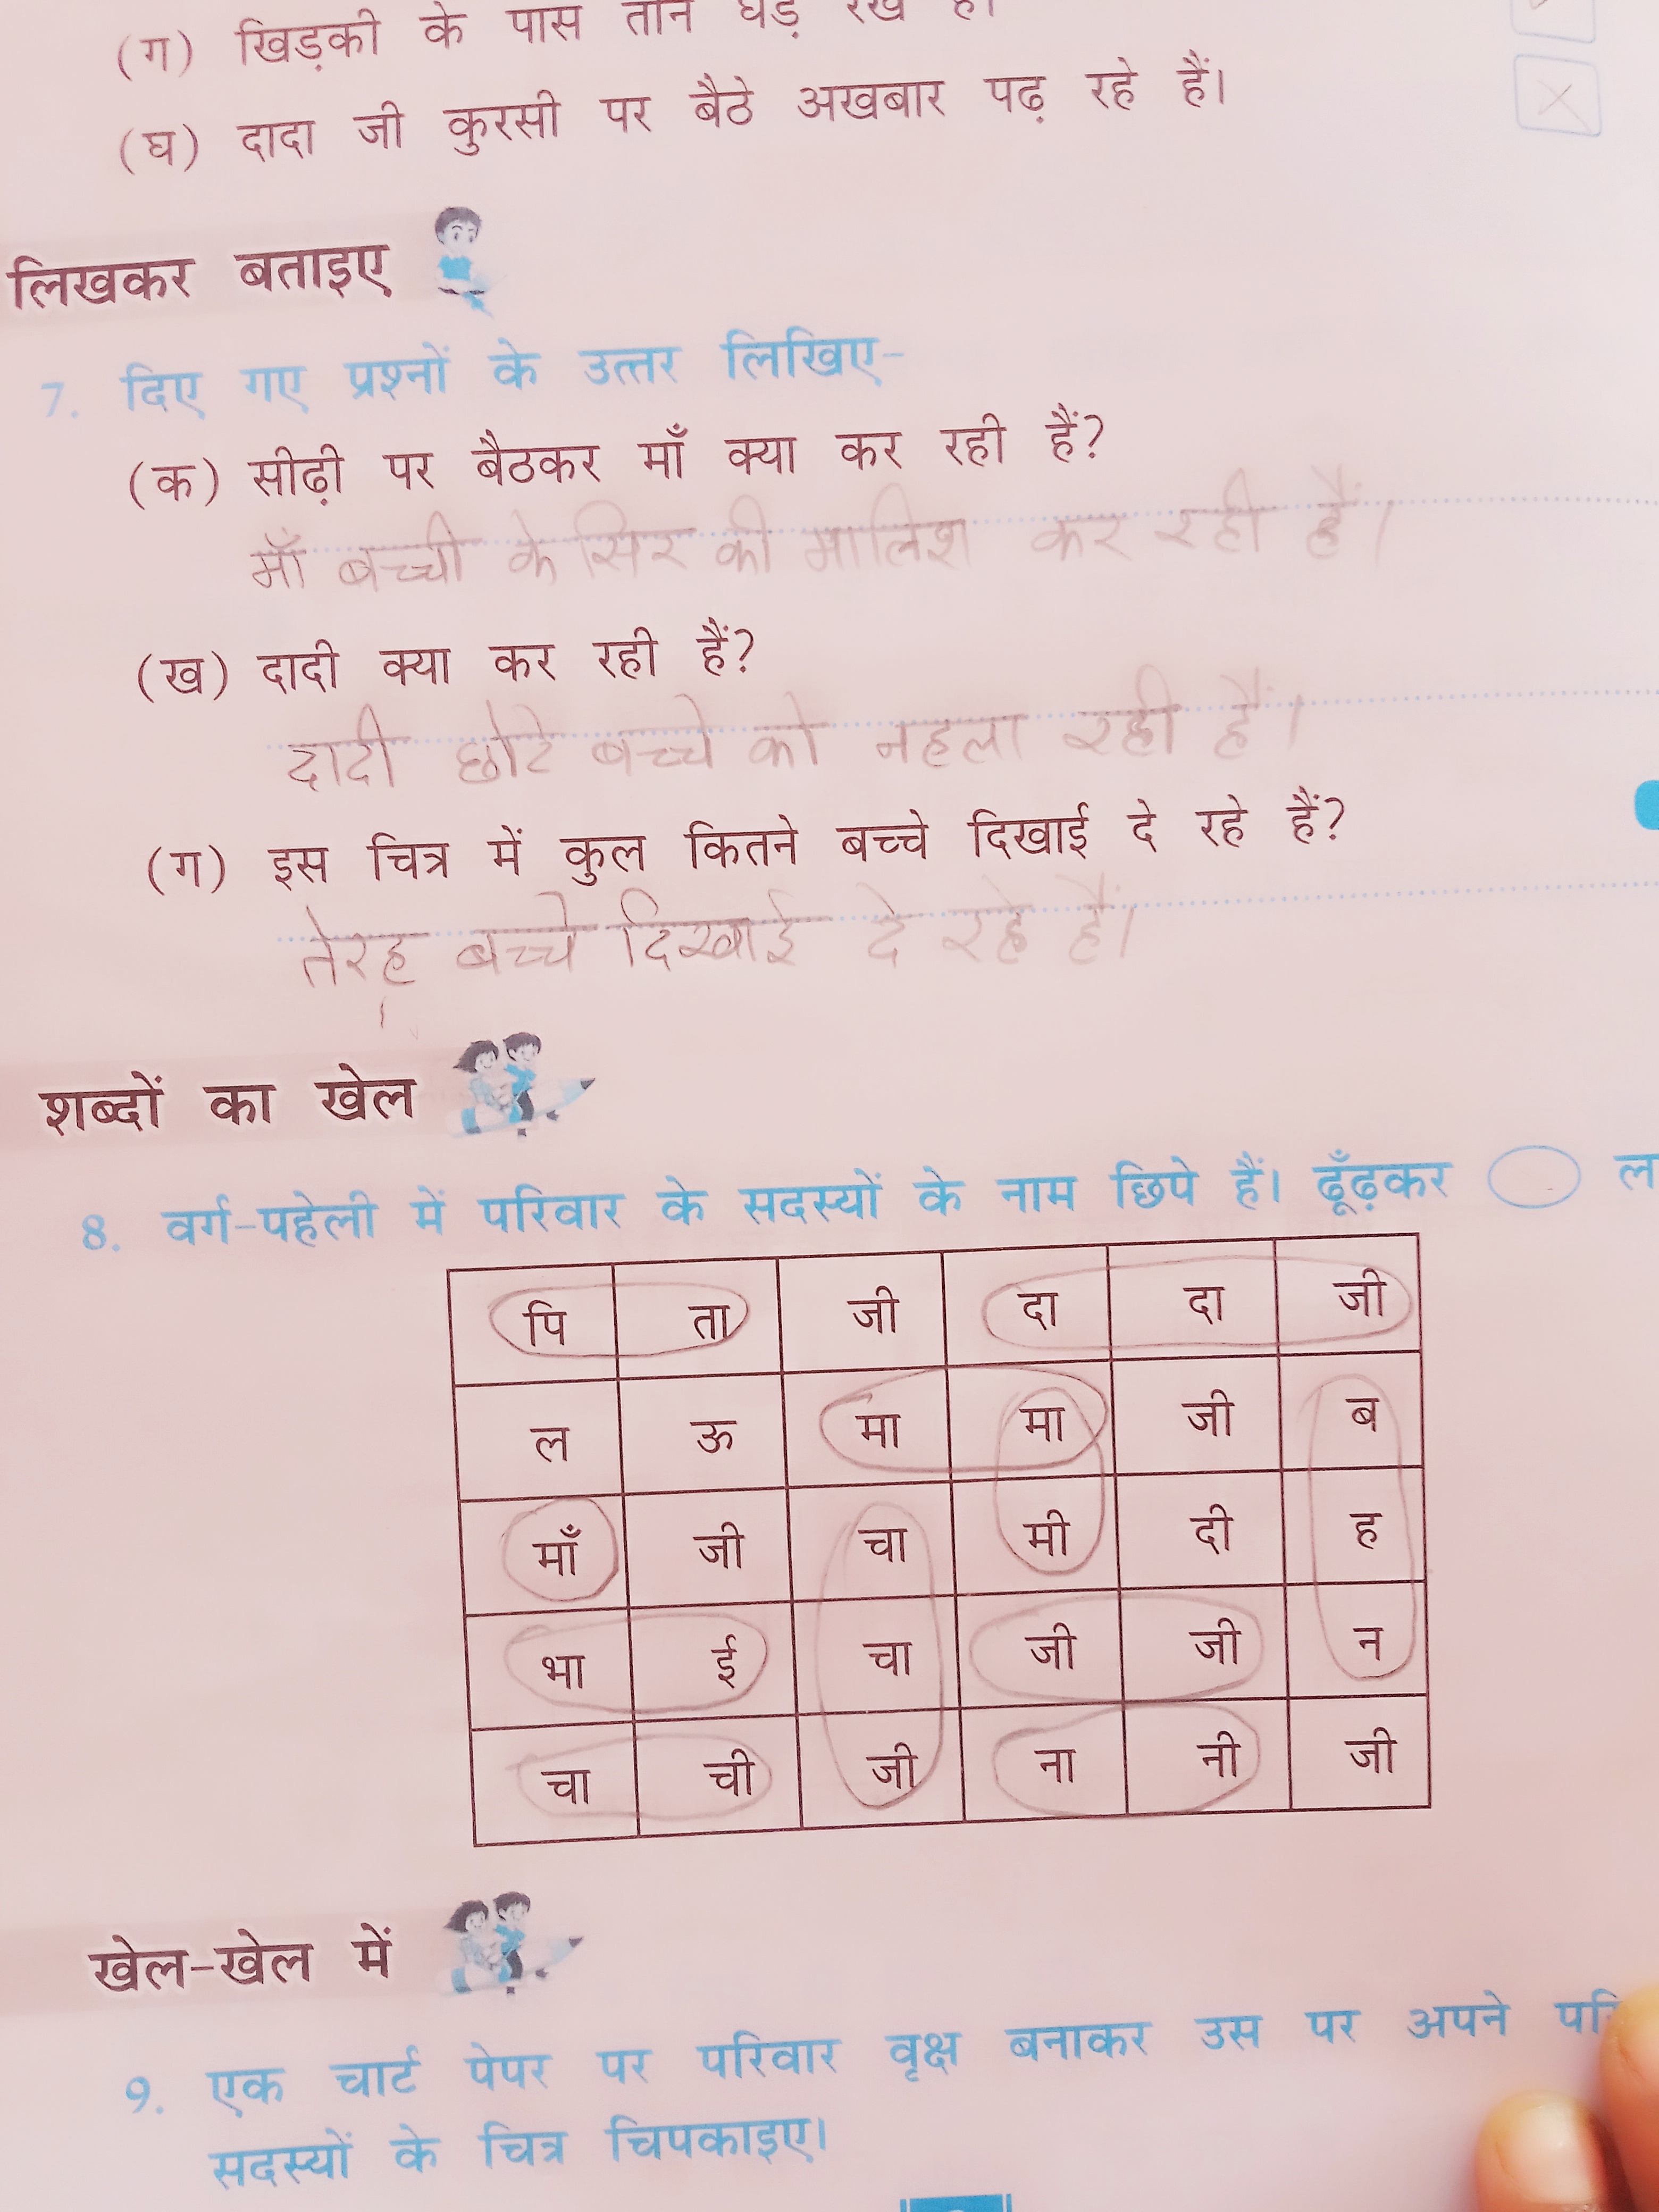 (ग) खिड़की के पास तीन घड़े रखे हैं।
(घ) दादा जी कुरसी पर बैठे अखबार पढ़ रहे हैं।
लिखकर बताइए
7. दिए गए प्रश्नों के उत्तर लिखिए-
(क) सीढ़ी पर बैठकर माँ क्या कर रही हैं?
माँ बच्ची के सिर की मालिश कर रही हैं।
(ख) दादी क्या कर रही हैं?
दादी छोटे बच्चे को नहला रही हैं।
(ग) इस चित्र में कुल कितने बच्चे दिखाई दे रहे हैं?
तेरह बच्चे दिखाई दे रहे हैं।
शब्दों का खेल
8. वर्ग-पहेली में परिवार के सदस्यों के नाम छिपे हैं। ढूँढ़कर ल
पि ता जी दा दा जी
ल ऊ मा मा जी ब
माँ जी चा मी दी ह
भा ई चा जी जी न
चा ची जी ना नी जी
खेल-खेल में
9. एक चार्ट पेपर पर परिवार वृक्ष बनाकर उस पर अपने परि
सदस्यों के चित्र चिपकाइए।